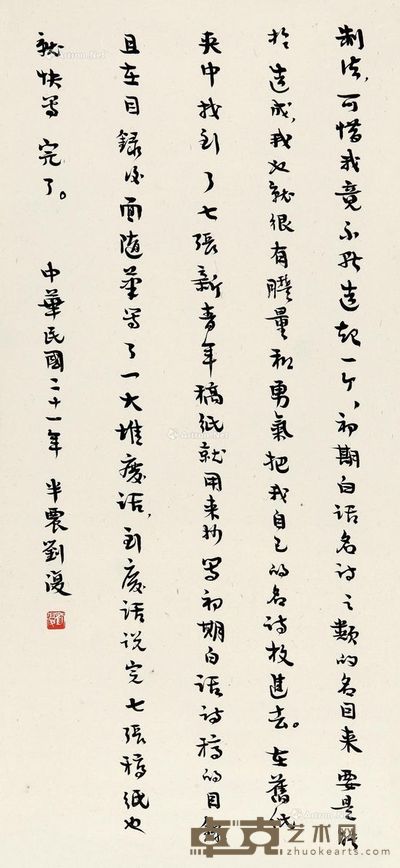 制法，可惜我竟不能造起一个，初期白话名诗之类的名目来 要是能
於造成，我也就很有胆量和勇氣把我自己的名诗放進去。在舊纸
夾中找到了七張新青年稿纸就用来抄写初期白话诗稿的目録
且在目録后面随筆写了一大堆廢话，到廢话说完七張稿纸也
就快写完了。 中華民國二十一年 半農劉復
卓克艺术网
www.zhuokearts.com